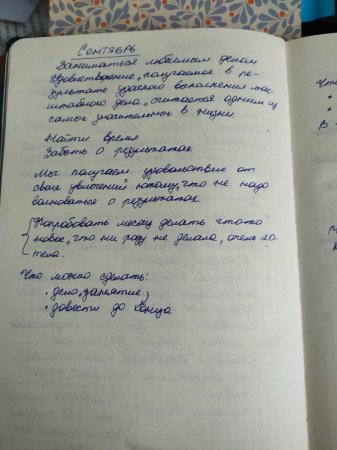 Сентябрь
Заниматься любимым делом
Удовлетворение, получаемое в ре-
зультате удачного выполнения мас-
штабного дела, считается одним из
самых значительных в жизни.
Найти время
Забыть о результатах
Мы получаем удовольствие от
своих увлечений потому, что не надо
волноваться о результатах.
Попробовать месяц делать что-то
новое, что ни разу не делала, очень хо-
тела.
Что можно сделать:
· дело, занятие,
· довести до конца
Что
В -